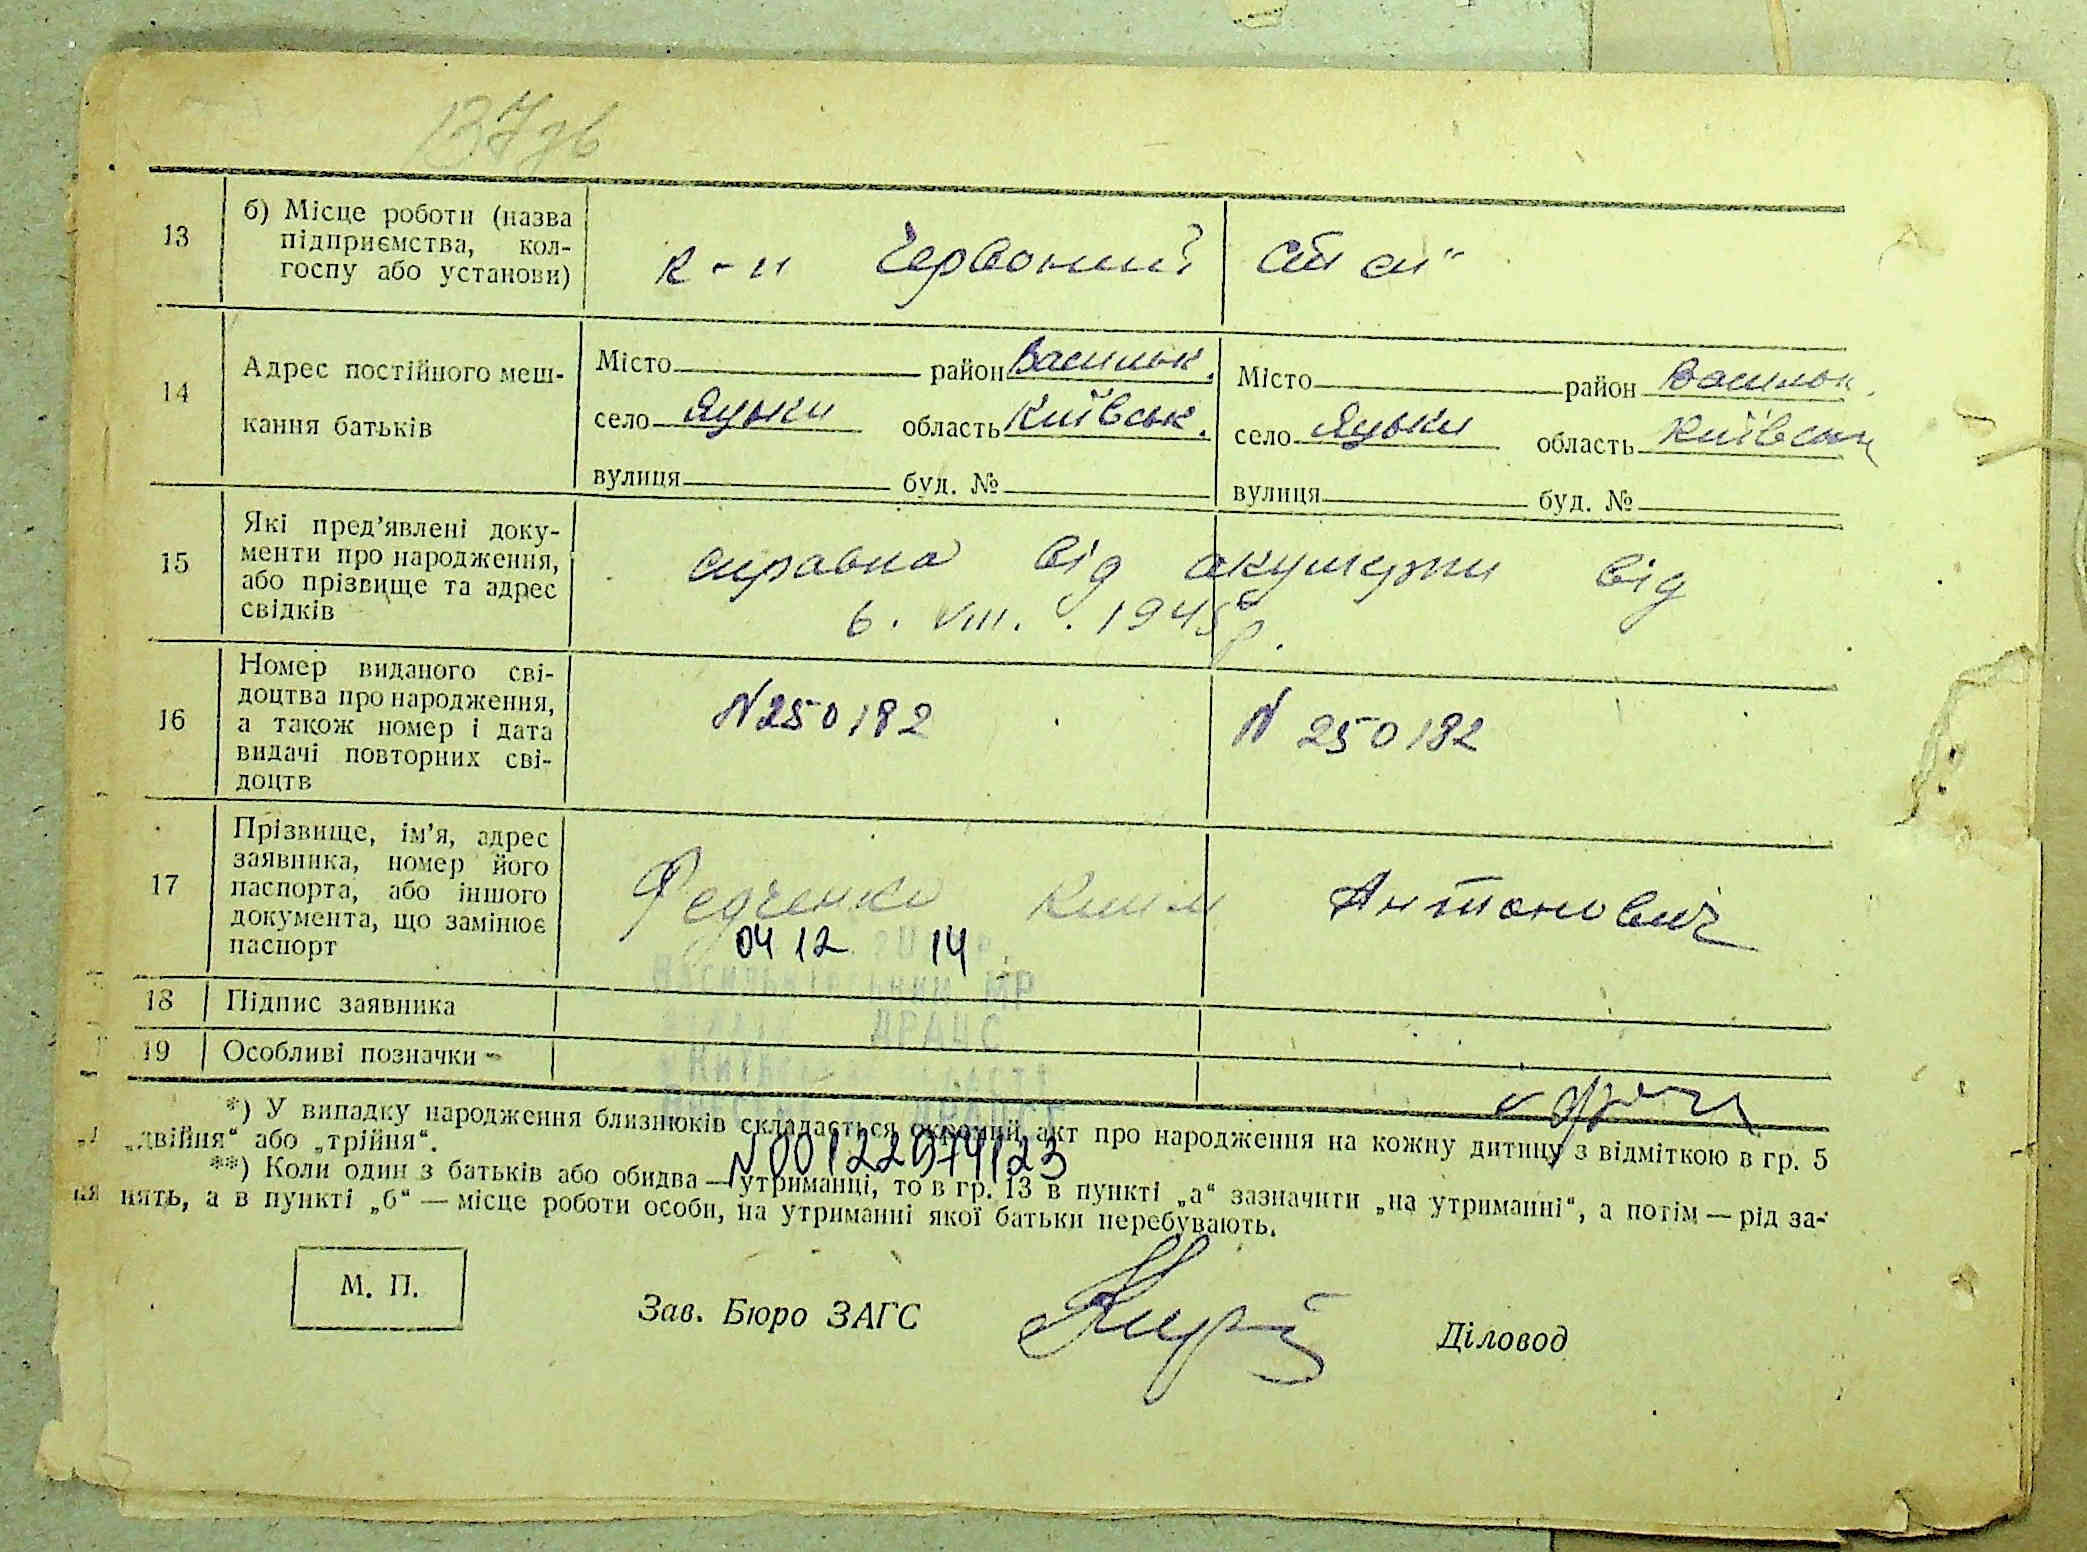 137зв
13 б) Місце роботи (назва
підприємства, кол-
госпу або установи)
к-п Червоний
14 Адрес постійного меш-
кання батьків
Місто район Васильк. Місто район Васильк.
село Яцьки область Київськ. село Яцьки область Київськ
вулиця буд. № вулиця буд. №
15 Які пред’явлені доку-
менти про народження,
або прізвище та адрес
свідків
справка від акушерки від
6. VIII. 1945 р.
16 Номер виданого сві-
доцтва про народження,
а також номер і дата
видачі повторних сві-
доцтв
N250182 N 250182
17 Прізвище, ім’я, адрес
заявника, номер його
паспорта, або іншого
документа, що замінює
паспорт
Федченко Антонович
04 12 2014 р.
Васильківський МР
ДРАЦС
18 Підпис заявника
19 Особливі позначки
*) У випадку народження близнюків складається окремий акт про народження на кожну дитину з відміткою в гр. 5
„двійня“ або „трійня“.
N00122974123
**) Коли один з батьків або обидва — утриманці, то в гр. 13 в пункті „а“ зазначити „на утриманні“, а потім — рід за-
нять, а в пункті „б“ — місце роботи особи, на утриманні якої батьки перебувають.
М. П.
Зав. Бюро ЗАГС Діловод